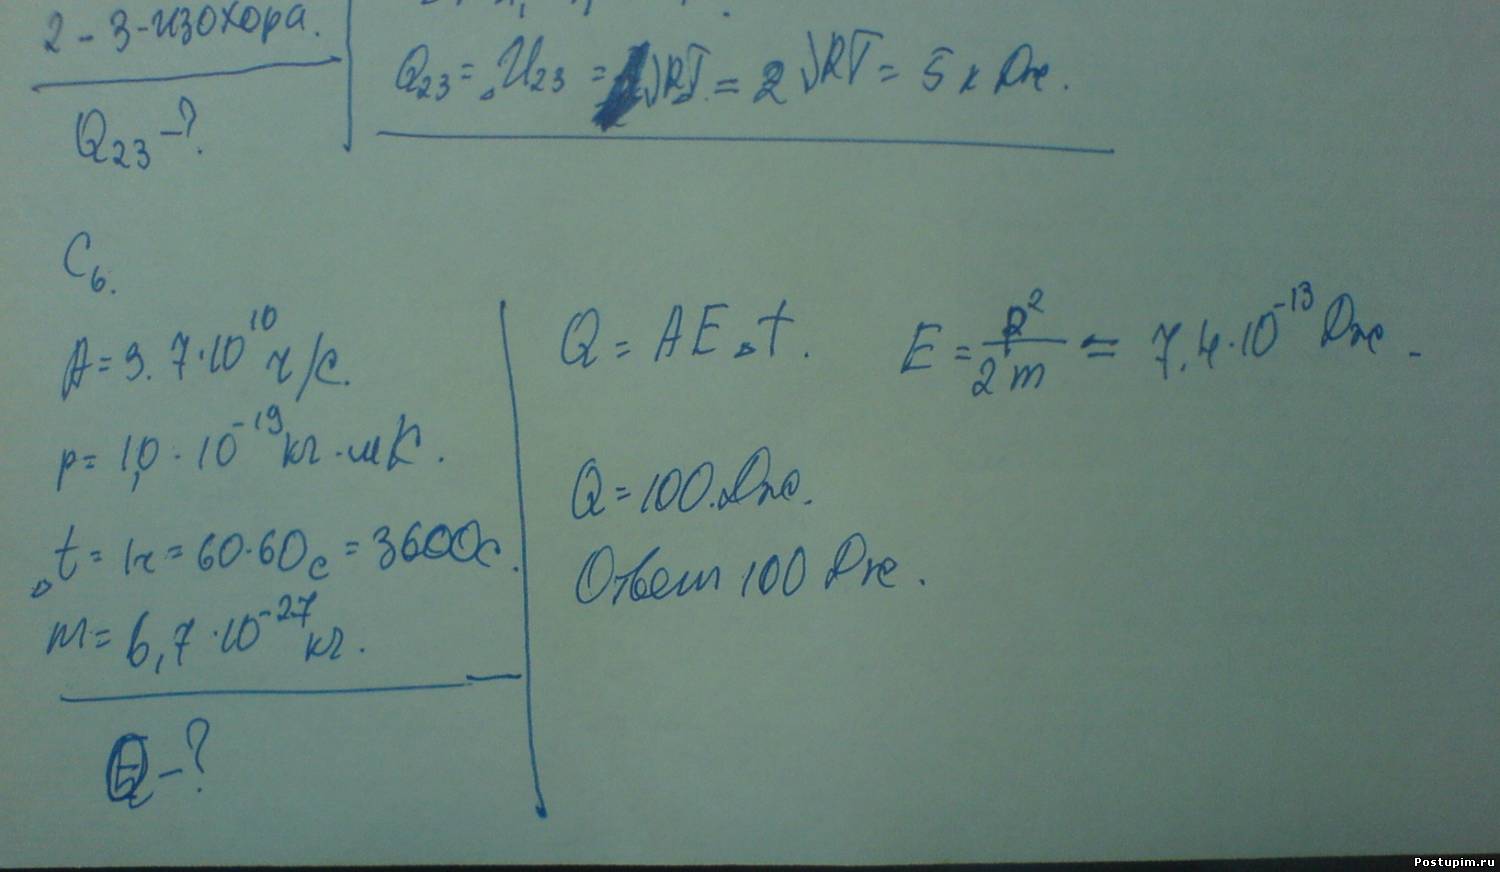 2-3-изохора.
Q₂₃ = ΔU₂₃ = νRT = 2 νRT = 5 кДж.
Q₂₃ -?
C₆.
A = 3.7·10¹⁰ ч/с.
p = 1,0·10⁻¹⁹ кг·м/с.
Δt = 1ч = 60·60с = 3600с.
m = 6,7·10⁻²⁷ кг.
Q -?
Q = AEΔt. E = p²/2m = 7.4·10⁻¹³ Дж.
Q = 100.Дж.
Ответ 100 Дж.
Postupim.ru